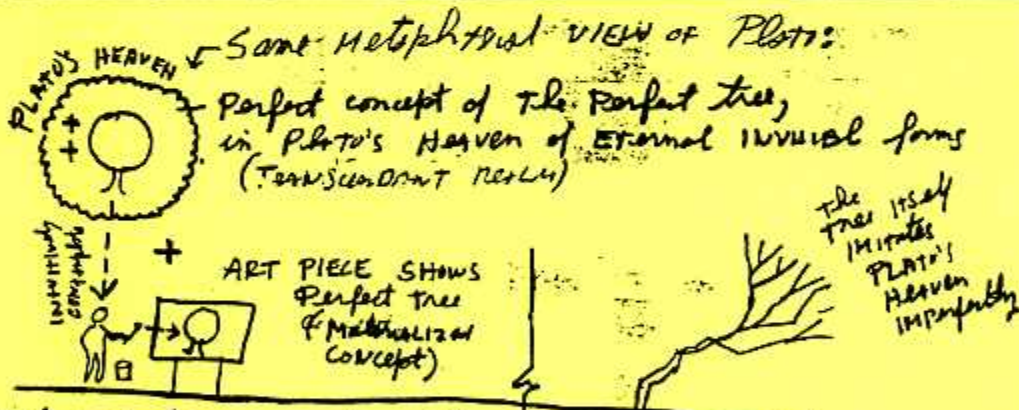 PLATO'S HEAVEN
Same Metaphysical VIEW of Plato:
Perfect concept of The Perfect tree,
in Plato's Heaven of ETERNAL INVISIBL forms
(TRANSCENDANT REALM)
+
+
+
ART PIECE SHOWS
Perfect Tree
(MATERIALIZED
CONCEPT)
The
Tree ITSelf
IMITATES
PLATO'S
HEAVEN
IMPerfectly